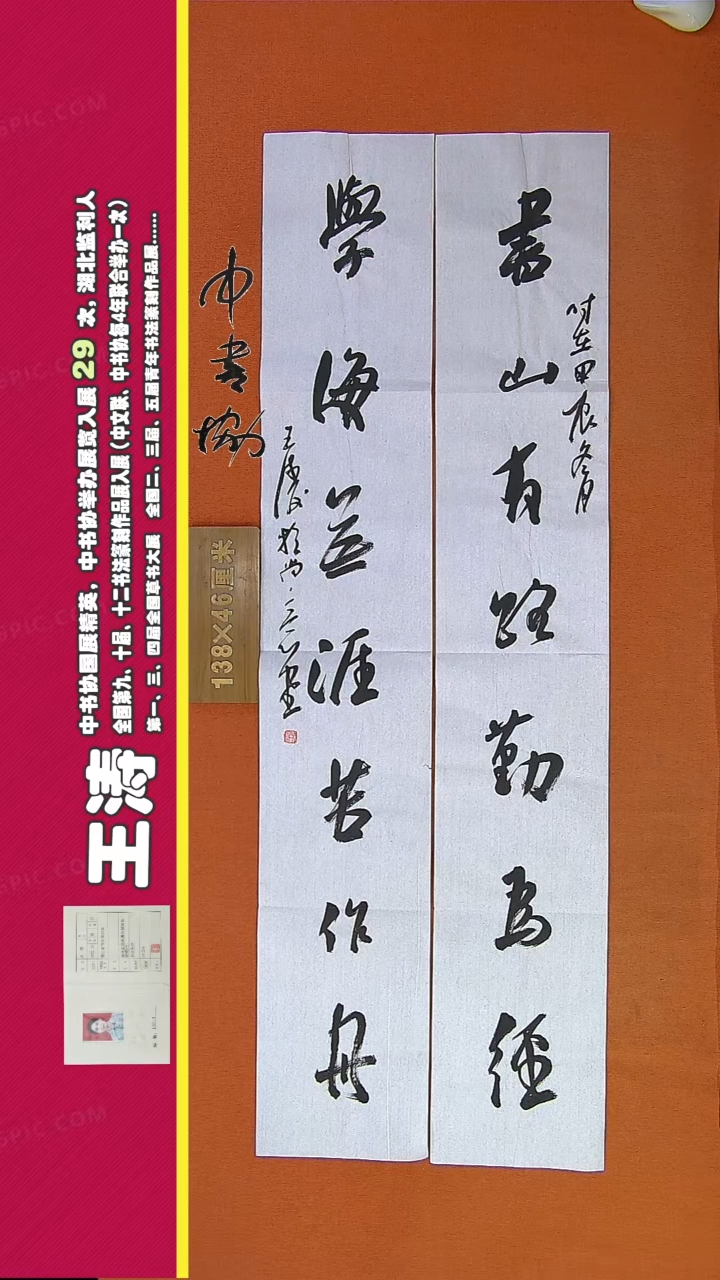 書山有路勤為徑
時在甲辰冬月
學海無涯苦作舟
王濤於尚一三心堂
中書協
138×46厘米
王涛
中书协国展精英，中书协举办展览入展 29 次，湖北监利人
全国第九、十届、十二书法篆刻作品展入展（中文联、中书协每4年联合举办一次）
第一、三、四届全国草书大展 全国二、三届、五届青年书法篆刻作品展......